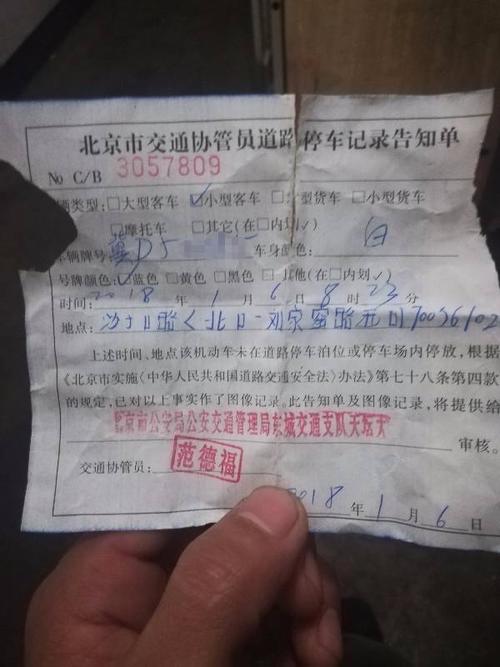 北京市交通协管员道路停车记录告知单
No C/B 3057809
辆类型：□大型客车 ☑小型客车 □大型货车 □小型货车
□摩托车 □其它（在□内划√）
车辆牌号：冀D5 车身颜色：白
号牌颜色：☑蓝色 □黄色 □黑色 □其他（在□内划√）
时间：2018年1月6日8时23分
地点：
上述时间、地点该机动车未在道路停车泊位或停车场内停放，根据
《北京市实施〈中华人民共和国道路交通安全法〉办法》第七十八条第四款
的规定，已对以上事实作了图像记录。此告知单及图像记录，将提供给
北京市公安局公安交通管理局东城交通支队天坛大
审核。
交通协管员：范德福
2018年1月6日